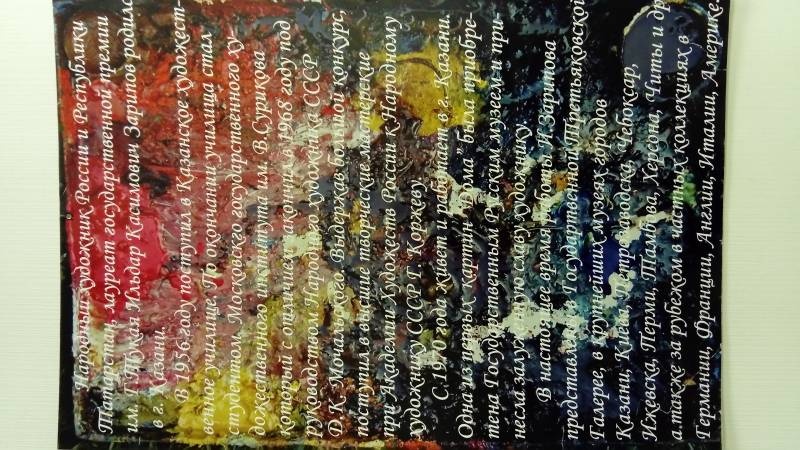 Народный художник России и Республики
Татарстан, лауреат государственной премии
им. Г. Тукая Ильдар Касимович Зарипов родилс
в г. Казани.
В 1956 году поступил в Казанское художест-
венное училище. По окончании училища стал
студентом Московского государственного ху-
дожественного института им. В.Сурикова
который с отличием закончил в 1968 году под
руководством Народного художника СССР
Д. К. Мочальского. Выдержав большой конкурс,
поступил в существующие творческие мастерские
при Академии Художеств в России к Народному
художнику СССР Г. Коржеву.
С 1970 года живет и работает в г. Казани.
Одна из первых картин была приобре-
тена Государственным Русским музеем и при-
несла заслуженный успех художнику
В настоящее время работы И.Зарипова
представлены в Государственной Третьяковской
Галерее, в крупнейших музеях городов
Казани, Киева, Петрозаводска, Чебоксар,
Ижевска, Перми, Тамбова, Херсона, Читы и др
а также за рубежом в частных коллекциях в
Германии, Франции, Англии, Италии, Америке.